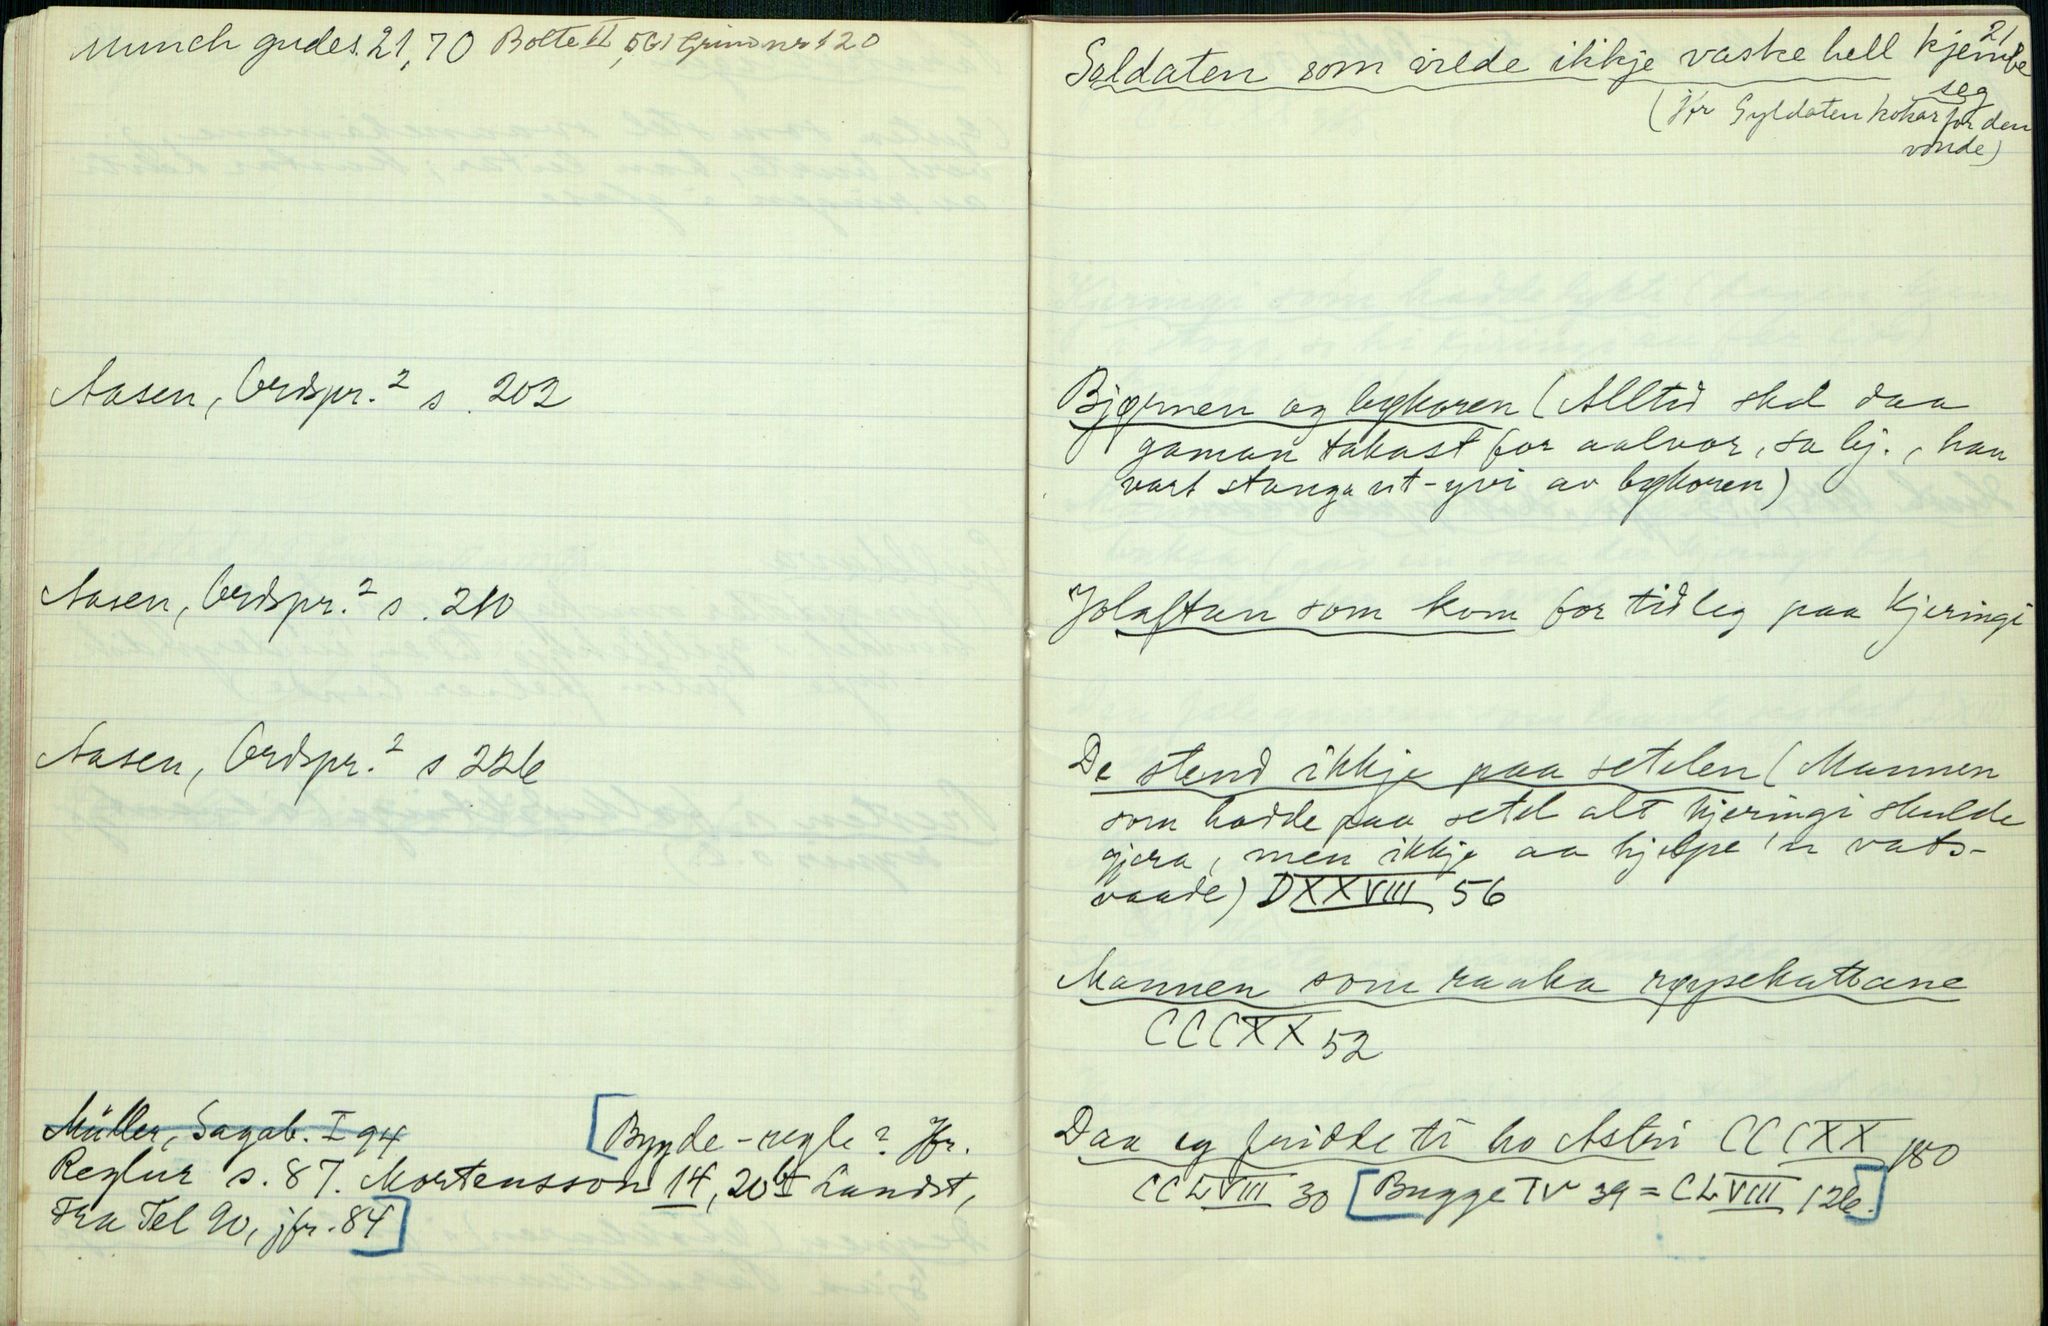 Munch gudes. 21, 70 Bolte II, 561 Grimm nr 120
Aasen, Ordspr.² s. 202
Aasen, Ordspr.² s. 210
Aasen, Ordspr.² s 226
Müller, Sagab. I 94
[Bygde-regle? Jfr.
Reglur s. 87. Mortensson 14, 20 Landst,
Fra Tel 90, jfr. 84]
21
Soldaten som vilde ikkje vaske hell kjembe
seg
(Jfr Syldaten kokar for den
vonde)
Bjørnen og bykoren (Alltid skal daa
gaman takast for aalvor, sa bj., han
vart stanga ut-yvi av bykoren)
Jolaftan som kom for tidleg paa Kjeringi
De stend ikkje paa setelen (Mannen
som hadde paa setel alt kjeringi skulde
gjera, men ikkje aa hjelpe 'n vats-
vaade) DXXVIII 56
Mannen som raaka røysekattane
CCCXX 52
Daa eg fridde ti ho Astri CCCXX 180
CCLVIII 30 [Bugge IV 39 = CLVIII 126.]